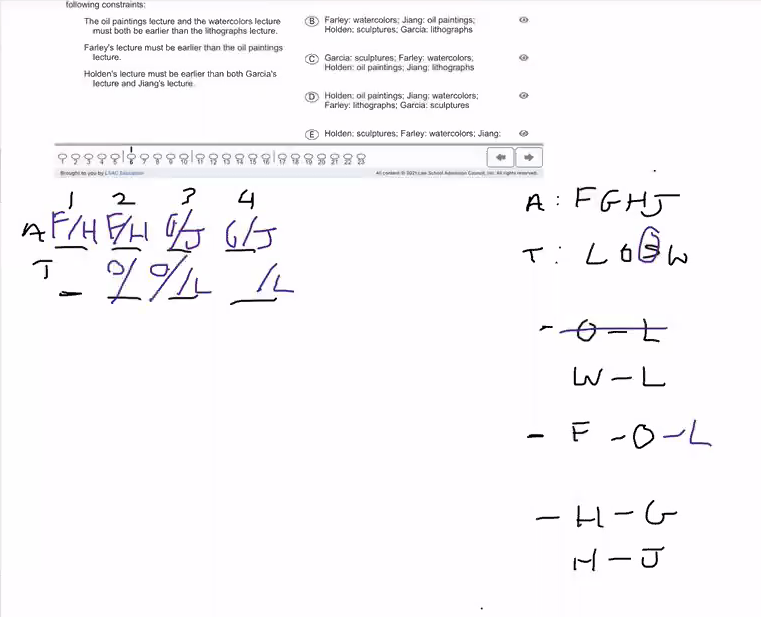 following constraints:
The oil paintings lecture and the watercolors lecture
must both be earlier than the lithographs lecture.
Farley's lecture must be earlier than the oil paintings
lecture.
Holden's lecture must be earlier than both Garcia's
lecture and Jiang's lecture.
B Farley: watercolors; Jiang: oil paintings;
Holden: sculptures; Garcia: lithographs
C Garcia: sculptures; Farley: watercolors,
Holden: oil paintings; Jiang: lithographs
D Holden: oil paintings; Jiang: watercolors;
Farley: lithographs; Garcia: sculptures
E Holden: sculptures; Farley: watercolors; Jiang:
1 2 3 4 5 6 7 8 9 10 11 12 13 14 15 16 17 18 19 20 21 22 23
Brought to you by LSAC Education
All content © 2021 Law School Admission Council, Inc. All rights reserved.
1 2 3 4
A F/H F/H G/J G/J
T - O/ O/L /L
A: F G H J
T: L O S W
- O - L
W - L
- F - O - L
- H - G
H - J